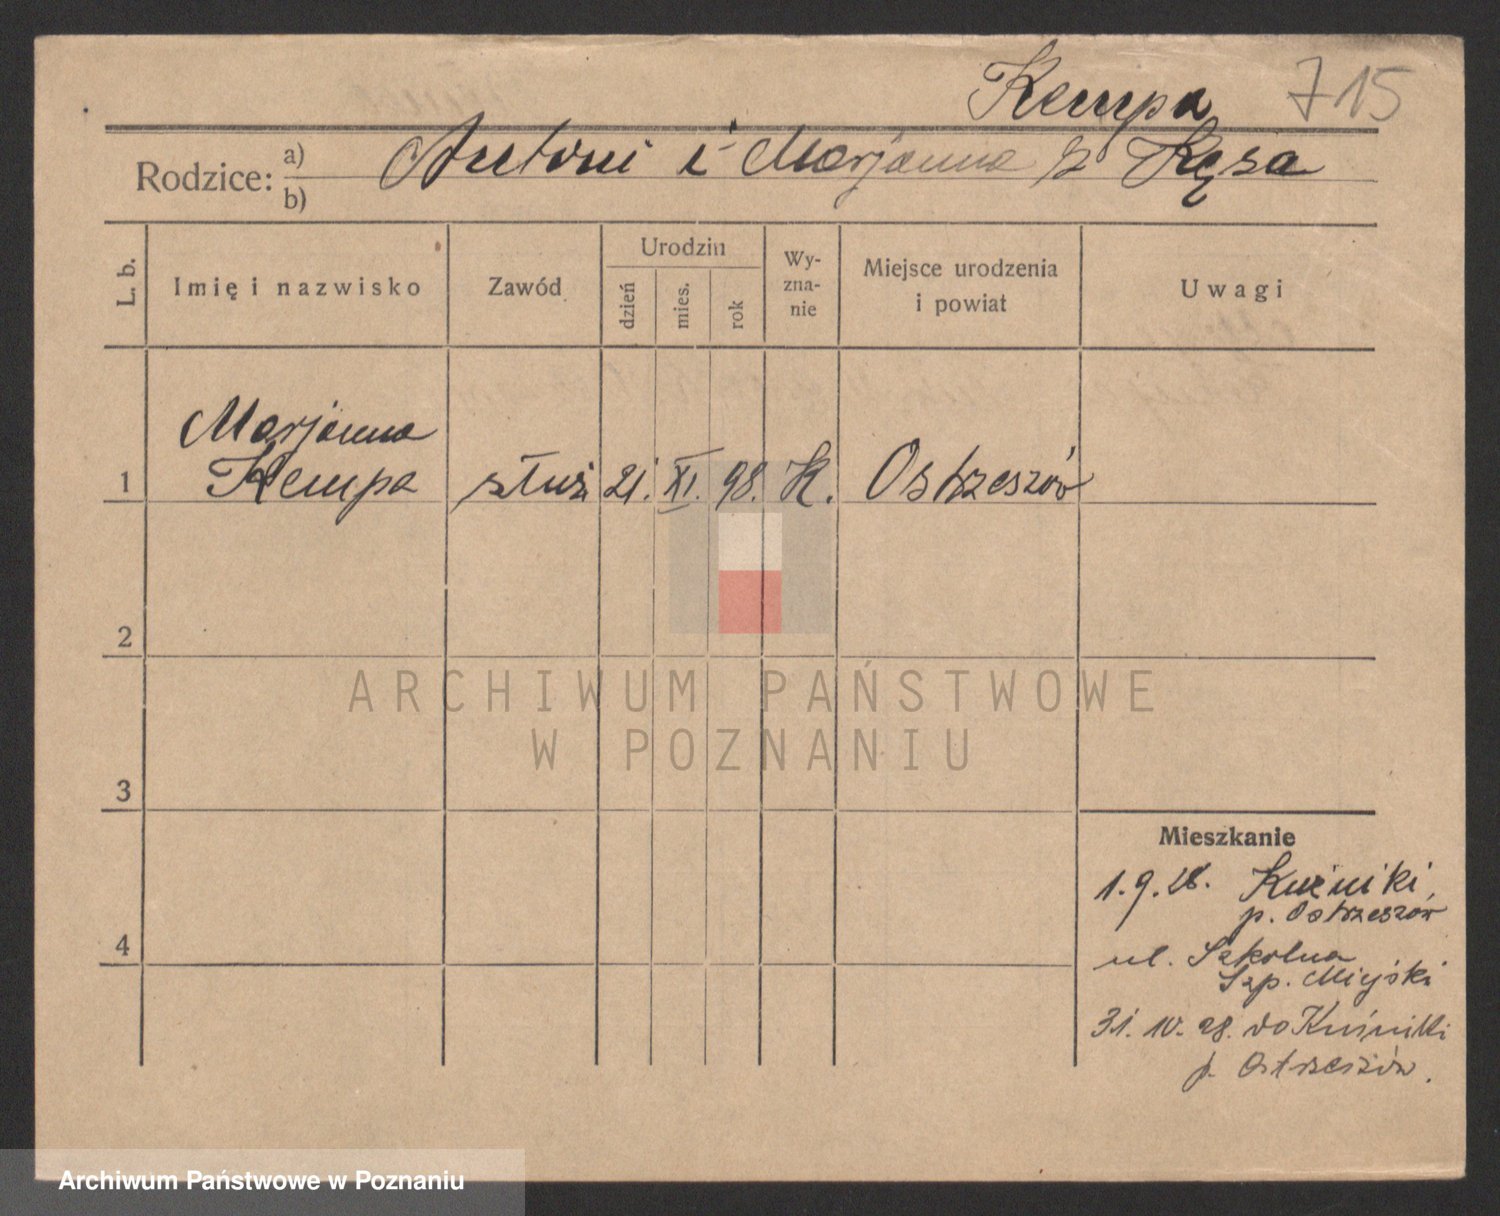 Kempa 715
Rodzice: a) b) Antoni i Marjanna z Kęsa
L. b.
Imię i nazwisko
Zawód
Urodzin
dzień
mies.
rok
Wy-
zna-
nie
Miejsce urodzenia
i powiat
Uwagi
Marjanna
1 Kempa służ. 21. XI. 98. K. Ostrzeszów
2
3
4
Mieszkanie
1.9.28. Kuźniki,
p. Ostrzeszów
ul. Szkolna
Szp. Miejski
31. 10. 28. do Kuźniki
p. Ostrzeszów.
ARCHIWUM PAŃSTWOWE
W POZNANIU
Archiwum Państwowe w Poznaniu